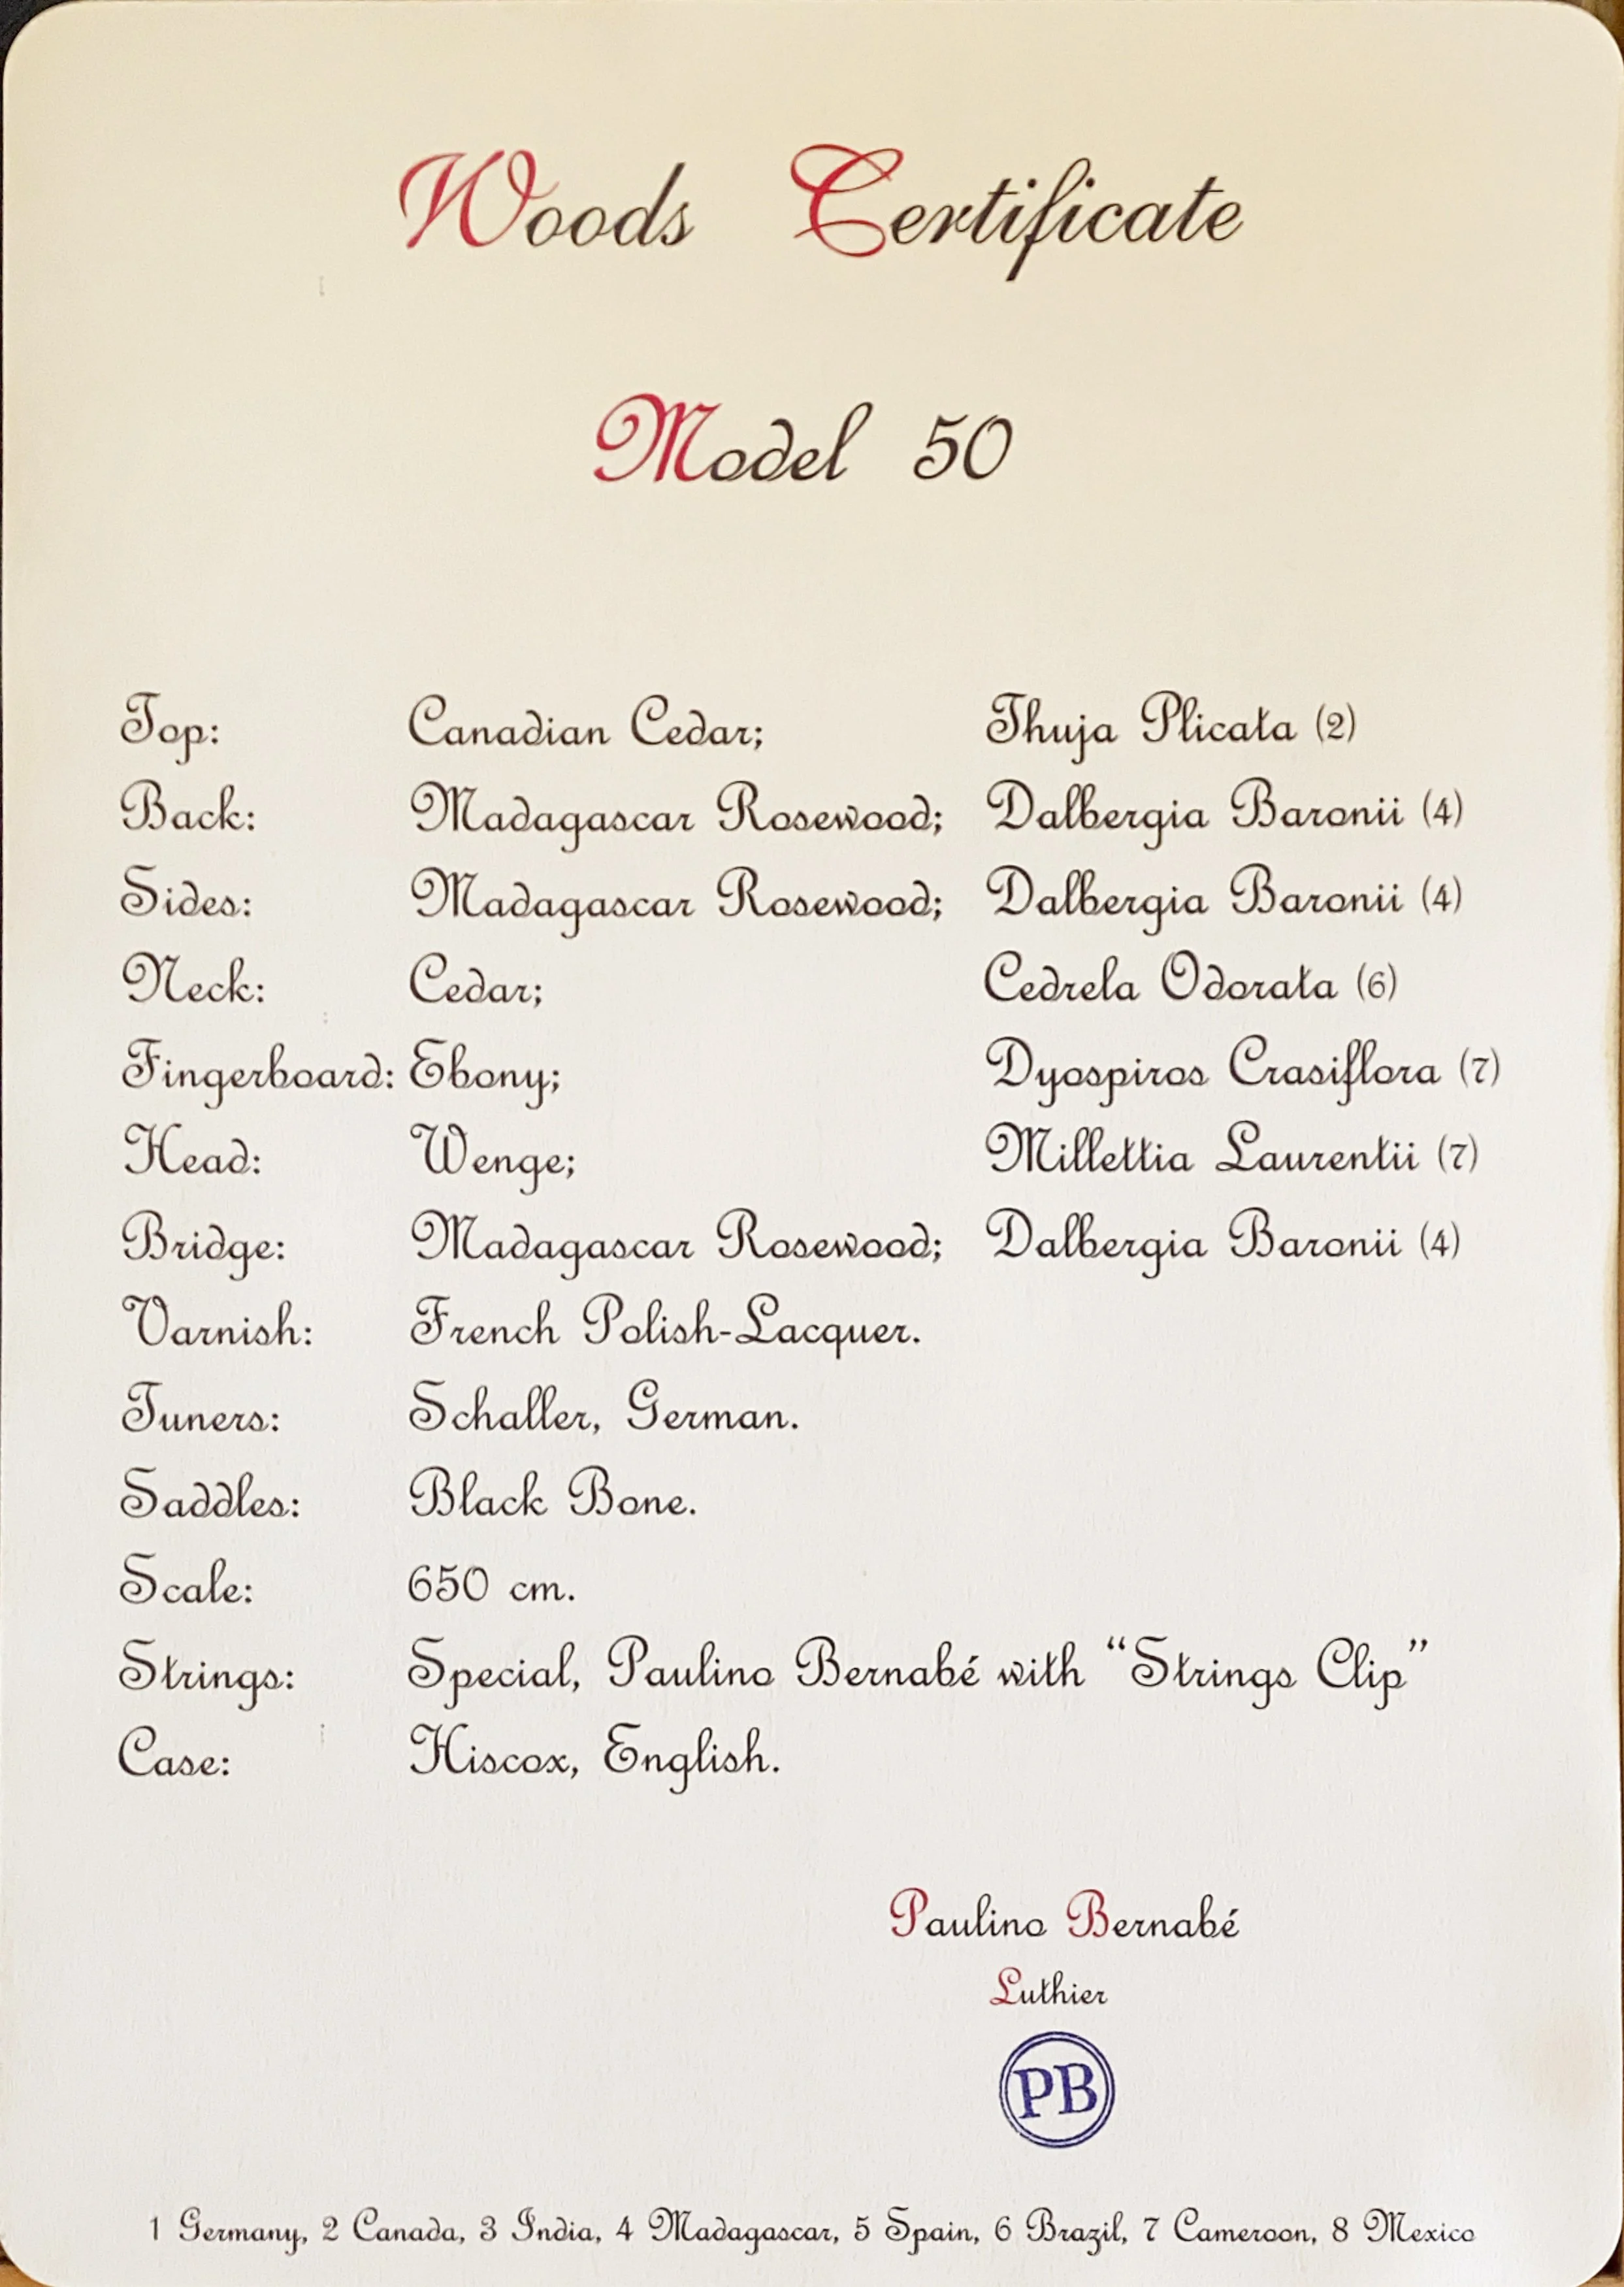 Woods Certificate
Model 50
Top: Canadian Cedar; Thuja Plicata (2)
Back: Madagascar Rosewood; Dalbergia Baronii (4)
Sides: Madagascar Rosewood; Dalbergia Baronii (4)
Neck: Cedar; Cedrela Odorata (6)
Fingerboard: Ebony; Dyospiros Crasiflora (7)
Head: Wenge; Millettia Laurentii (7)
Bridge: Madagascar Rosewood; Dalbergia Baronii (4)
Varnish: French Polish-Lacquer.
Tuners: Schaller, German.
Saddles: Black Bone.
Scale: 650 cm.
Strings: Special, Paulino Bernabé with “Strings Clip”
Case: Hiscox, English.
Paulino Bernabé
Luthier
PB
1 Germany, 2 Canada, 3 India, 4 Madagascar, 5 Spain, 6 Brazil, 7 Cameroon, 8 Mexico